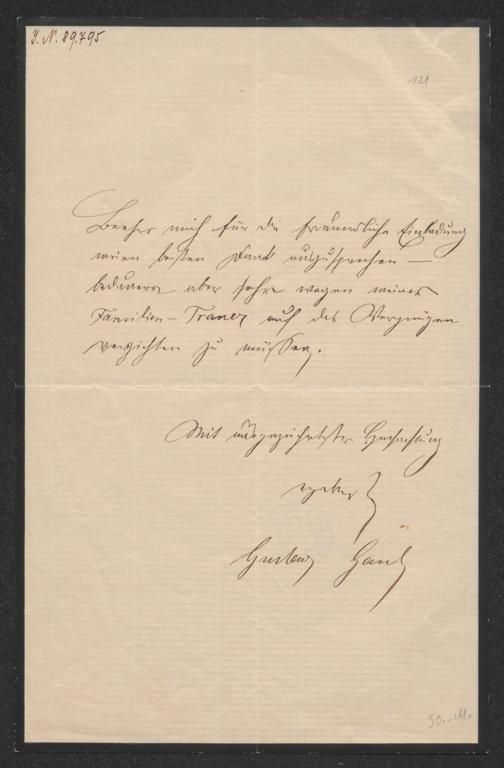 J. N. 89.795
121
Beehre mich für die freundliche Einladung
meinen besten Dank auszusprechen —
bedauere aber sehr wegen meiner
Familien-Trauer auf das Vergnügen
verzichten zu müssen.
Mit ausgezeichneter Hochachtung
ergebenst
Gustav Gaul
30.-M.